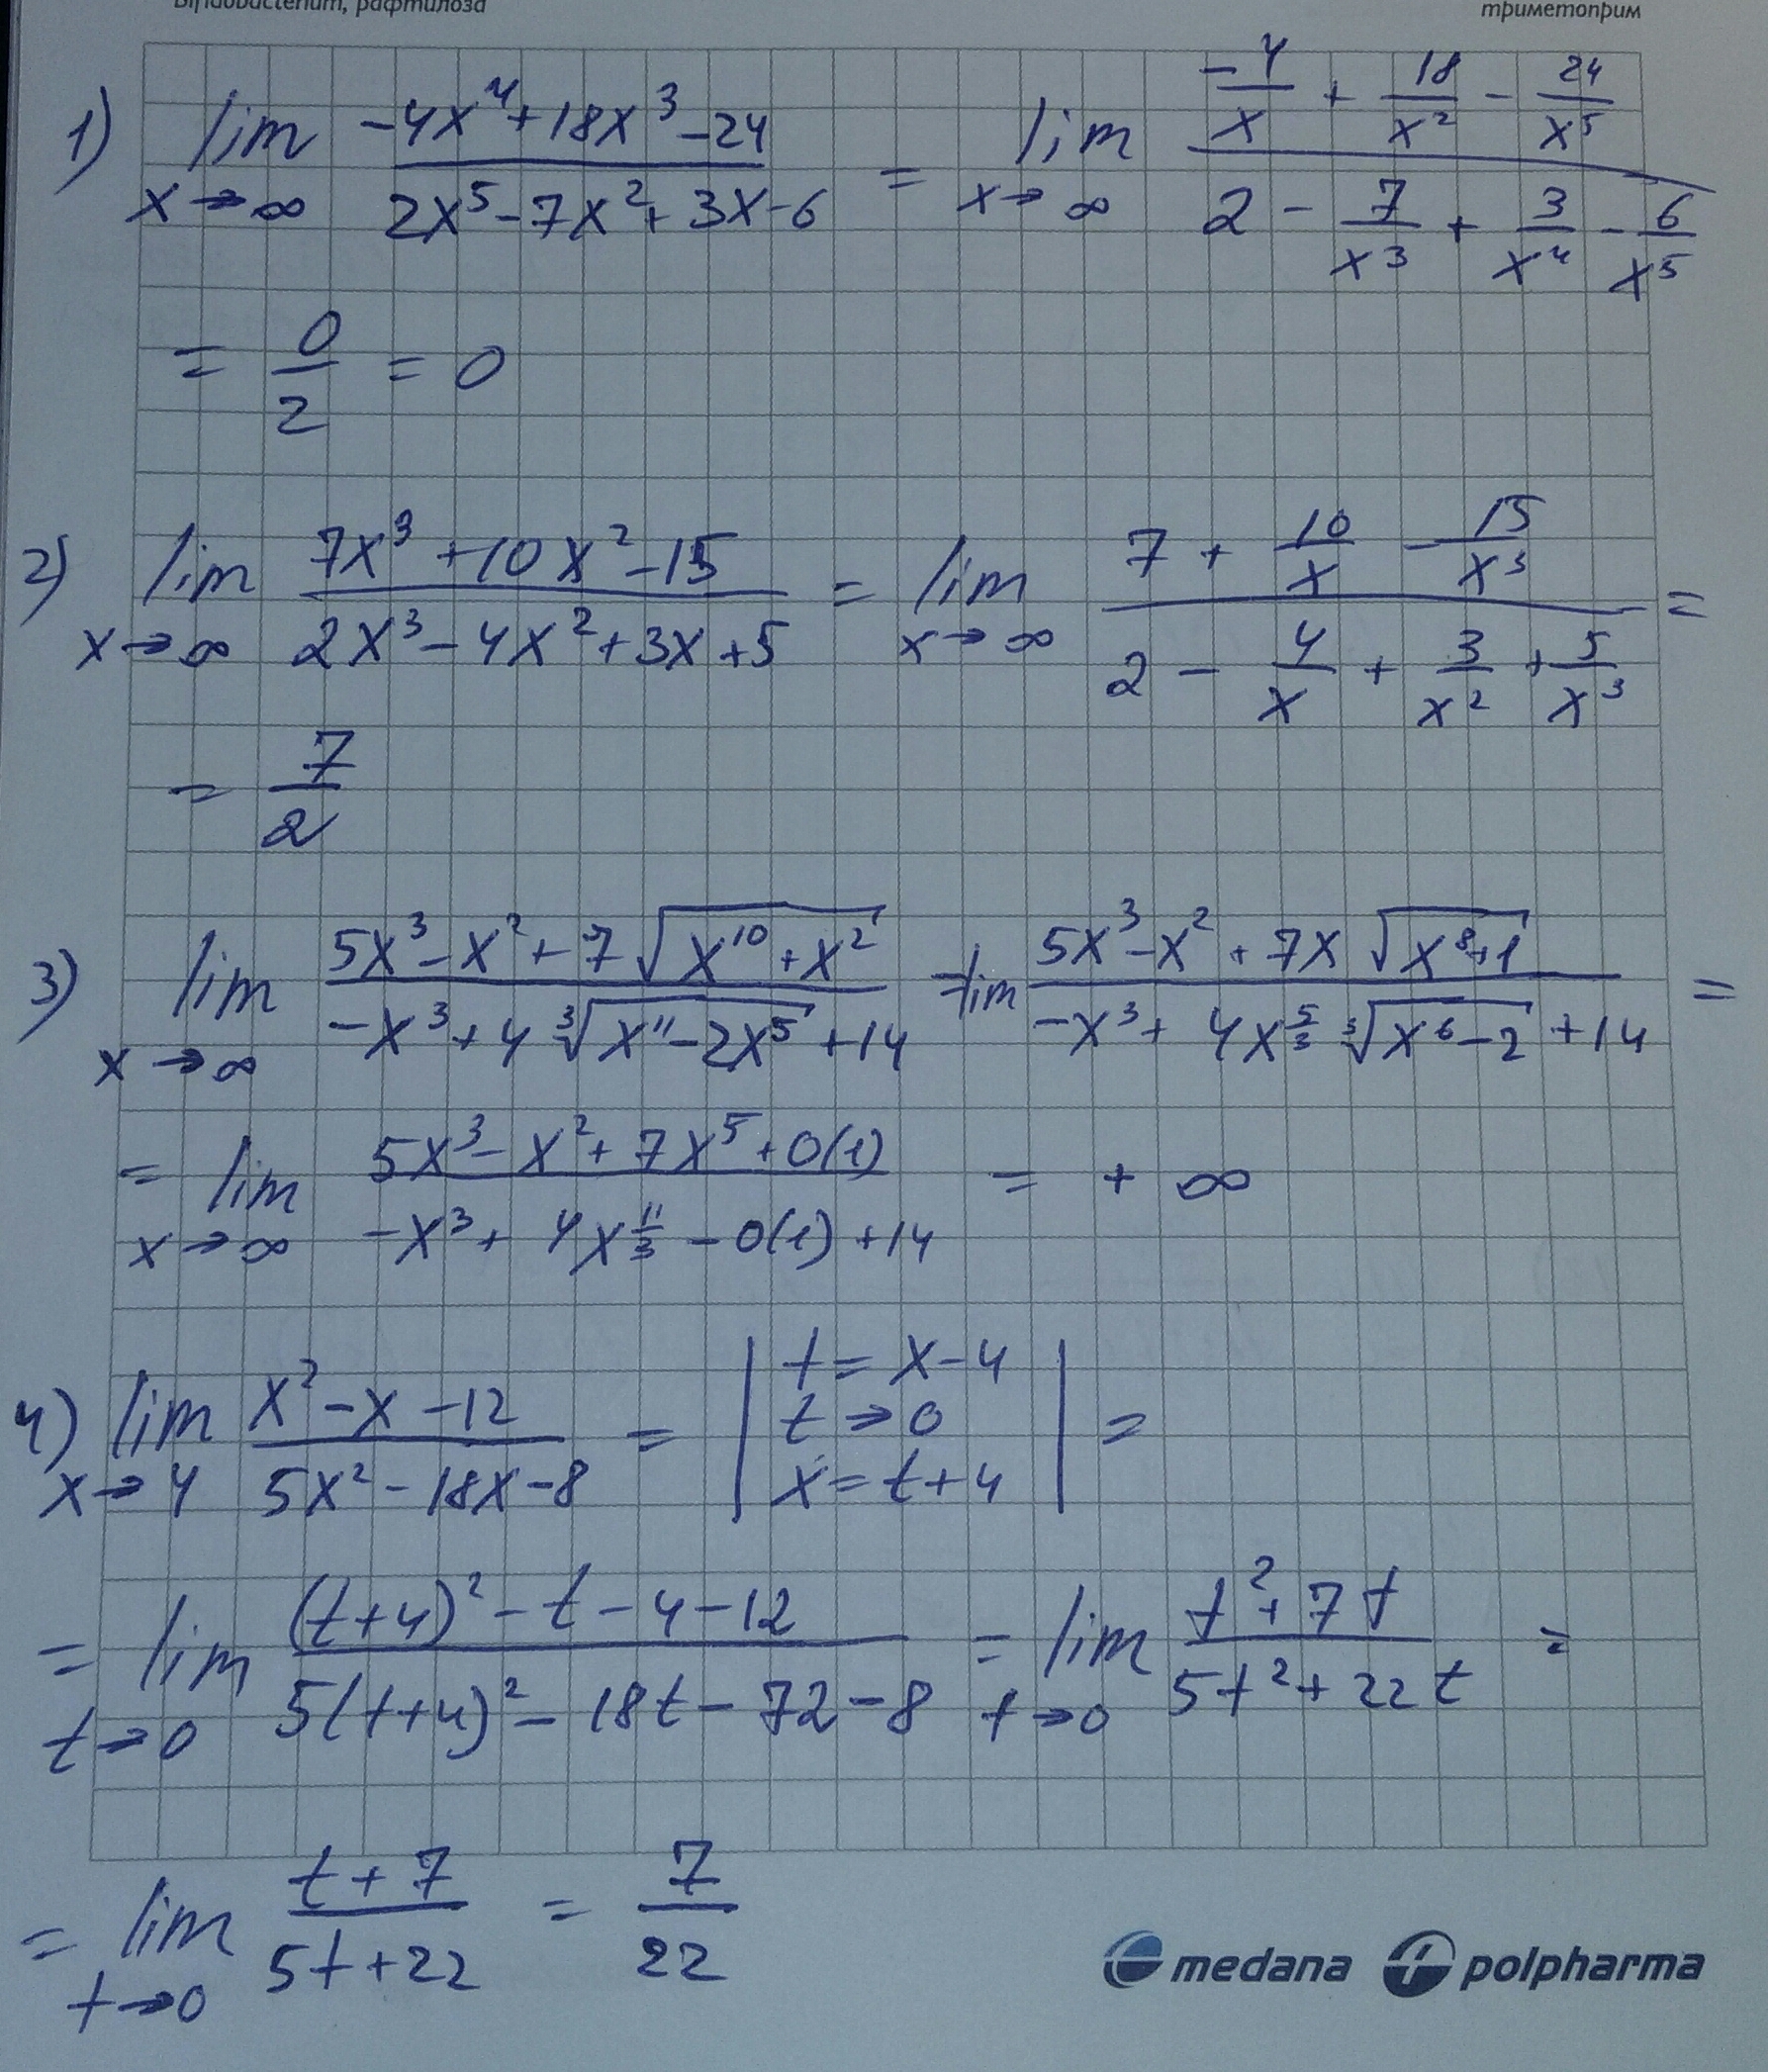 Bifidobacterium, рафтилоза
триметоприм
1) lim x→∞ (-4x⁴+18x³-24)/(2x⁵-7x²+3x-6) = lim x→∞ (-4/x + 18/x² - 24/x⁵)/(2 - 7/x³ + 3/x⁴ - 6/x⁵)
= 0/2 = 0
2) lim x→∞ (7x³+10x²-15)/(2x³-4x²+3x+5) = lim x→∞ (7 + 10/x - 15/x³)/(2 - 4/x + 3/x² + 5/x³) =
= 7/2
3) lim x→∞ (5x³-x²+7√(x¹⁰+x²))/(-x³+4∛(x¹¹-2x⁵)+14) = lim (5x³-x²+7x√(x⁸+1))/(-x³+4x^(5/3) ∛(x⁶-2)+14) =
= lim x→∞ (5x³-x²+7x⁵+0(1))/(-x³+4x^(11/3)-0(1)+14) = +∞
4) lim x→4 (x²-x-12)/(5x²-18x-8) = | t=x-4 t→0 x=t+4 | =
= lim t→0 ((t+4)²-t-4-12)/(5(t+4)²-18t-72-8) = lim t→0 (t²+7t)/(5t²+22t) =
= lim t→0 (t+7)/(5t+22) = 7/22
medana polpharma